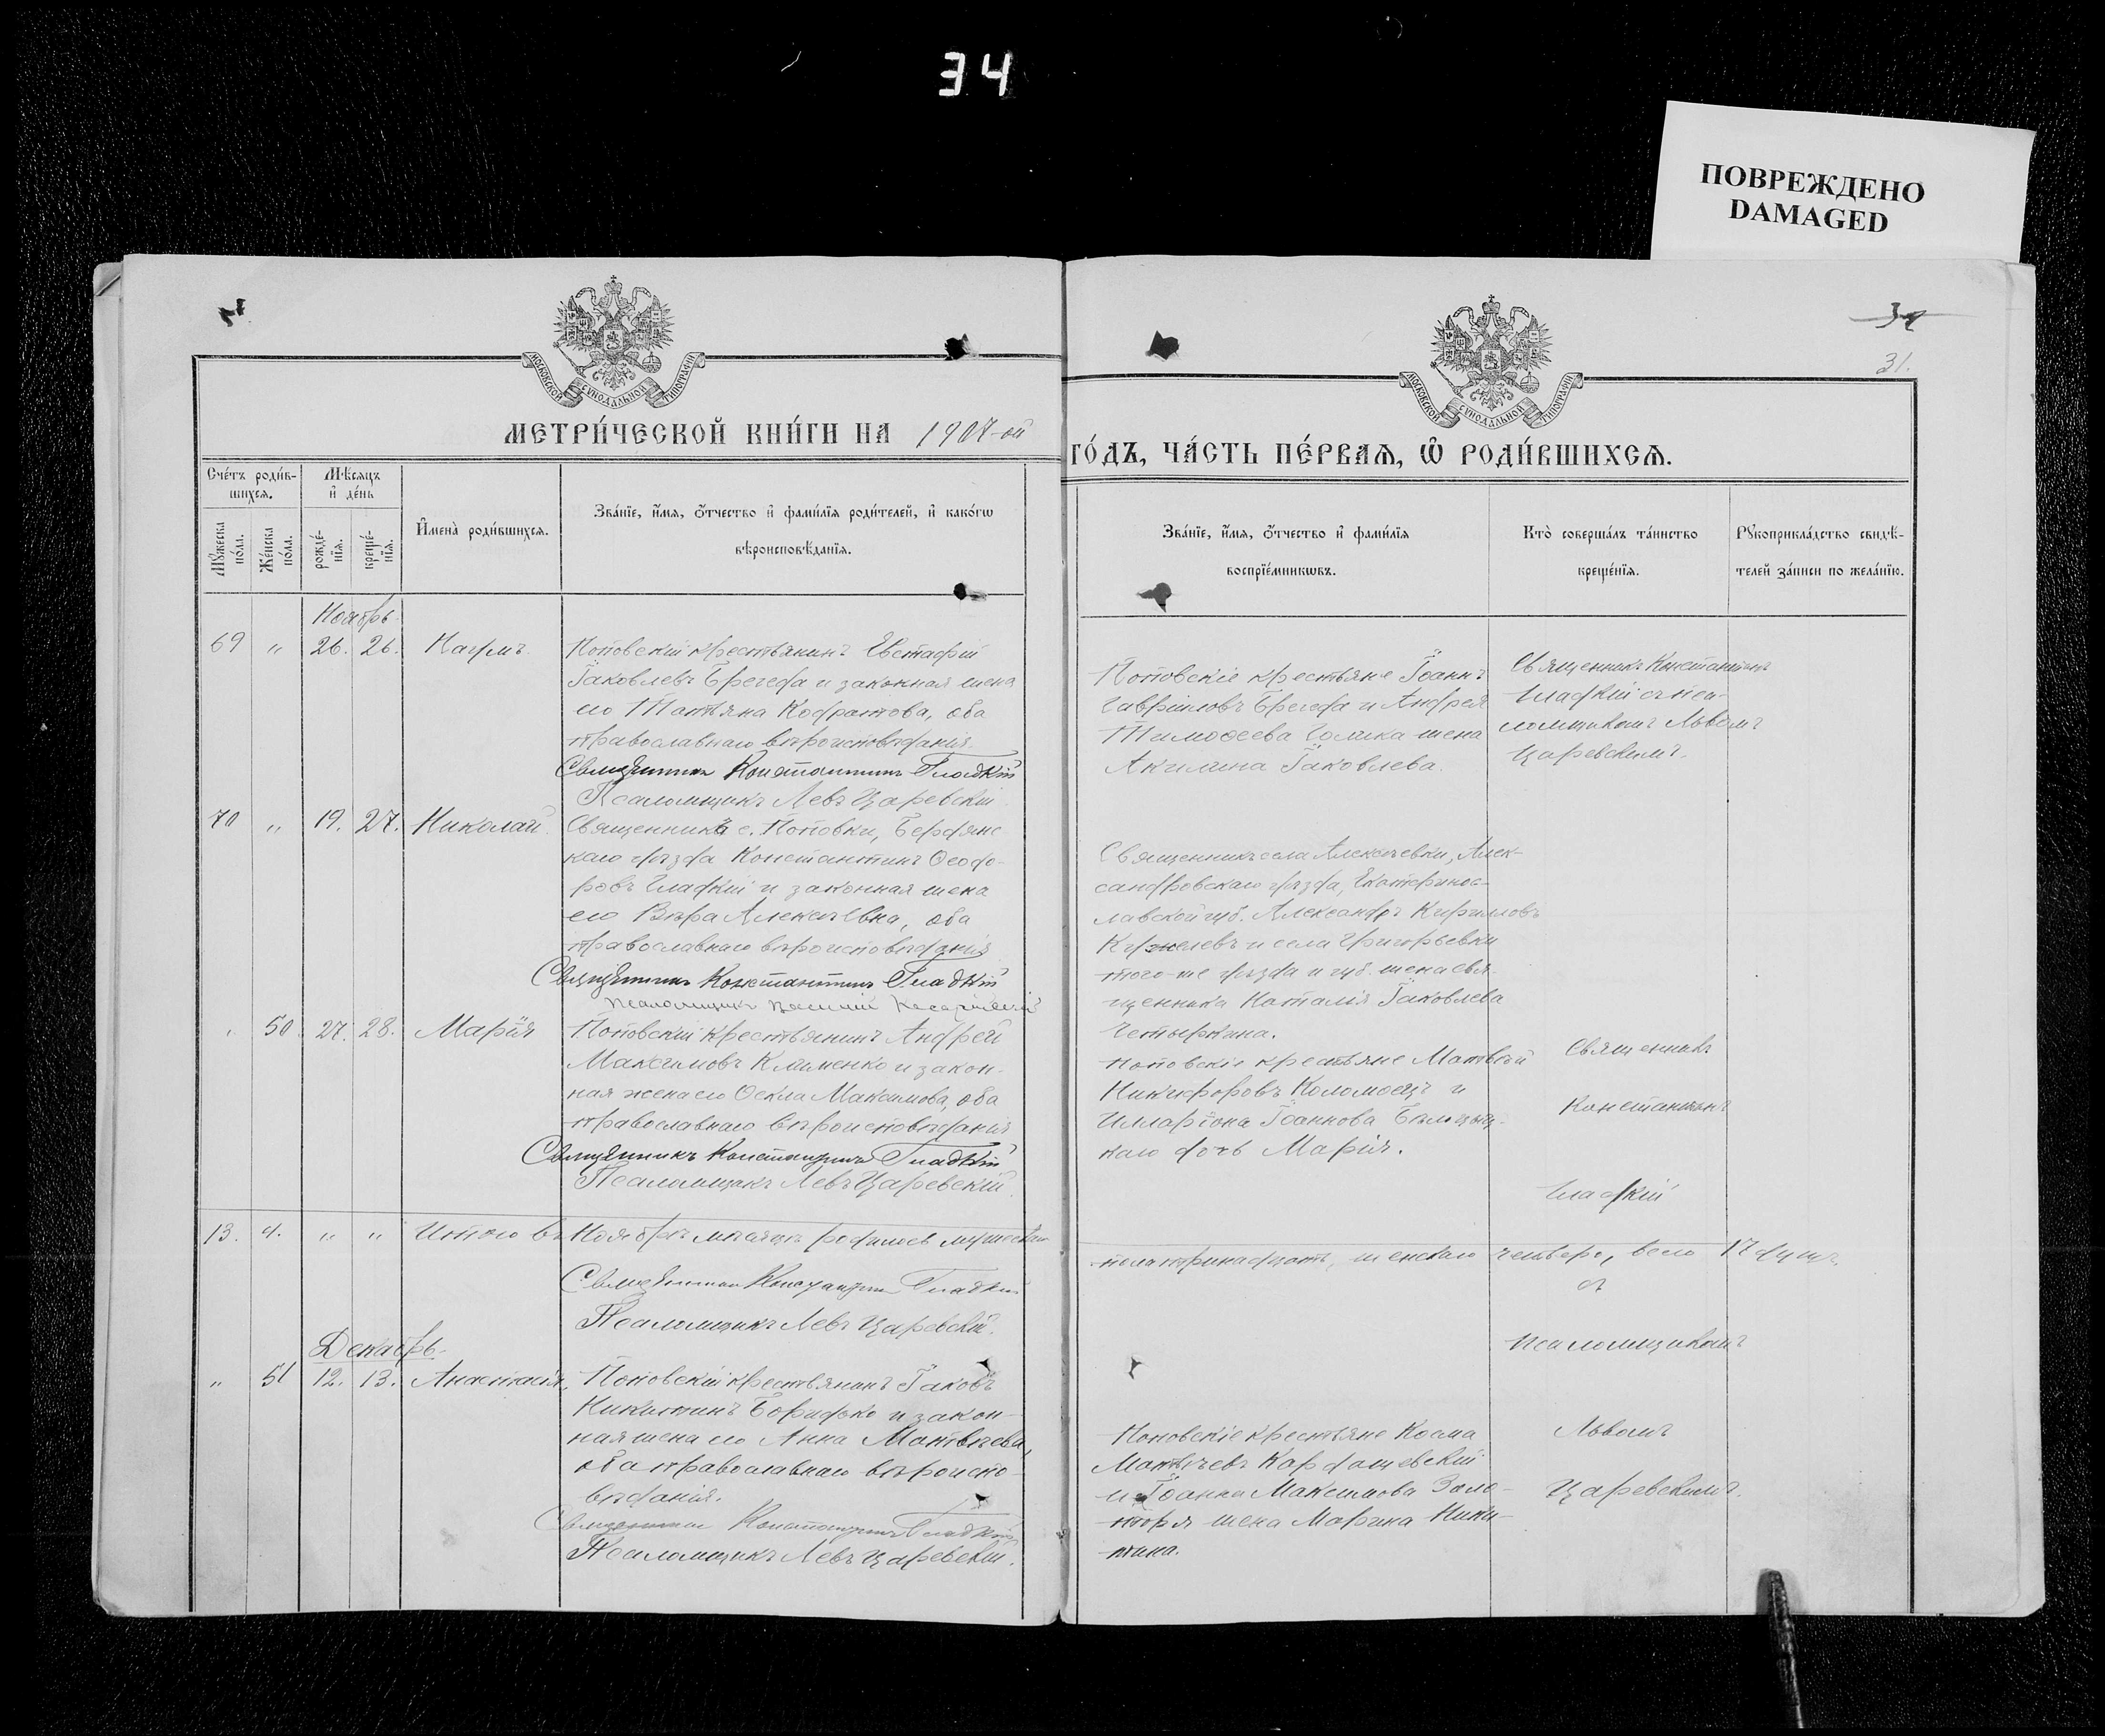 34
ПОВРЕЖДЕНО
DAMAGED
34
31.
МОСКОВСКОЙ СѴНОДАЛЬНОЙ ТИПОГРАФІИ
МОСКОВСКОЙ СѴНОДАЛЬНОЙ ТИПОГРАФІИ
МЕТРИ́ЧЕСКОЙ КНИ́ГИ НА 1907-ой
ГО́ДЪ, ЧА́СТЬ ПЕ́РВАѦ, Ѽ РОДИ́ВШИХСѦ.
Сче́тъ роди́в-
шихсѧ.
Мѣ́сѧцъ
и҆ де́нь
Мꙋ́жеска
по́ла.
Же́нска
по́ла.
рожде́-
нїѧ.
креще́-
нїѧ.
И҆мена̀ роди́вшихсѧ.
Зва́нїе, и҆́мѧ, ѻ҆́тчество и҆ фами́лїѧ роди́телей, и҆ како́гѡ
вѣроисповѣ́данїѧ.
Зва́нїе, и҆́мѧ, ѻ҆́тчество и҆ фами́лїѧ
воспрїе́мникѡвъ.
Кто̀ соверша́лъ та́инство
креще́нїѧ.
Рꙋкоприкла́дство свидѣ́-
телей за́писи по жела́нїю.
Ноябрь.
69 " 26. 26. Наумъ.
Поповскій крестьянинъ Евстафій
Іаковлевъ Брегеда и законная жена
его Татьяна Кодратова, оба
православнаго вѣроисповѣданія.
Священникъ Константинъ Гладкій
Псаломщикъ Левъ Царевскій
Поповскіе крестьяне Іоаннъ
Гавріиловъ Брегеда и Андрея
Тимоѳеева жена
Акилина Іаковлева.
Священникъ Константинъ
Гладкій съ пса-
ломщикомъ Львомъ
Царевскимъ.
70 " 19. 27. Николай.
Священникъ с. Поповки, Бердянс
каго уѣзда Константинъ Ѳеодо-
ровъ Гладкій и законная жена
его Вѣра Алексѣевна, оба
православнаго вѣроисповѣданія
Священникъ Константинъ Гладкій
Псаломщикъ
Священникъ села Алексѣевки, Алек-
сандровскаго уѣзда, Екатеринос-
лавской губ. Александръ Кирилловъ
и села Григорьевки
того-же уѣзда и губ. жена свя-
щенника Наталія Іаковлева
Четыркина.
" 50. 27. 28. Марія
Поповскій крестьянинъ Андрей
Максимовъ Клименко и закон-
ная жена его Ѳекла Максимова, оба
православнаго вѣроисповѣданія
Священникъ Константинъ Гладкій
Псаломщикъ Левъ Царевскій.
Поповскіе крестьяне Матвѣй
Никифоровъ Коломоецъ и
Илларіона Іоаннова
каго дочь Марія.
Священникъ
Константинъ
Гладкій
13. 4. " " Итого въ Ноябрѣ мѣсяцѣ родилось мужескаго
пола тринадцать, женскаго четыре, всего 17 душъ.
Священникъ Константинъ Гладкій
Псаломщикъ Левъ Царевскій.
съ
псаломщикомъ
Декабрь.
" 51 12. 13. Анастасія.
Поповскій крестьянинъ Іаковъ
Никитинъ и закон-
ная жена его Анна Матвѣева,
оба православнаго вѣроиспо-
вѣданія.
Священникъ Константинъ Гладкій
Псаломщикъ Левъ Царевскій.
Поповскіе крестьяне Косма
Матвѣевъ Кардашевскій
и Іоанна Максимова
жена Марина Ники-
тина.
Львомъ
Царевскимъ.